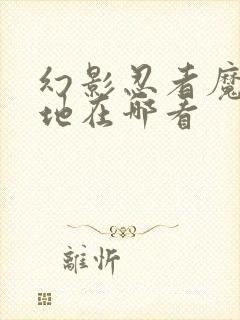 幻影忍者魔
地在哪看
離忻